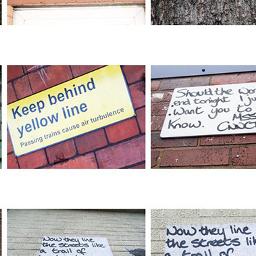 Keep behind
yellow line
Passing trains cause air turbulence
Should the Wor
end tonight I ju
Want you to
Know.
Now they line
the streets like
a trail of
Now they line
the streets lik
a trail of